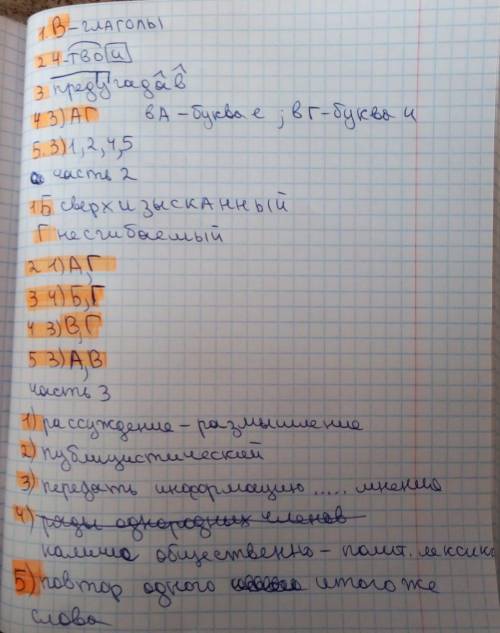 1. В - глаголы
2 4. твои
3 предугадав
4 3) АГ в А - буква е ; в Г - буква и
5. 3) 1, 2, 4, 5
часть 2
1 Б сверхизысканный
Г несгибаемый
2 1) А, Г
3 4) Б, Г
4 3) В, Г
5 3) А, В
часть 3
1) рассуждение - размышление
2) публицистический
3) передать информацию ..... мнению
4) ряды однородных членов
общественно - полит. лексика
5) повтор одного и того же
слова